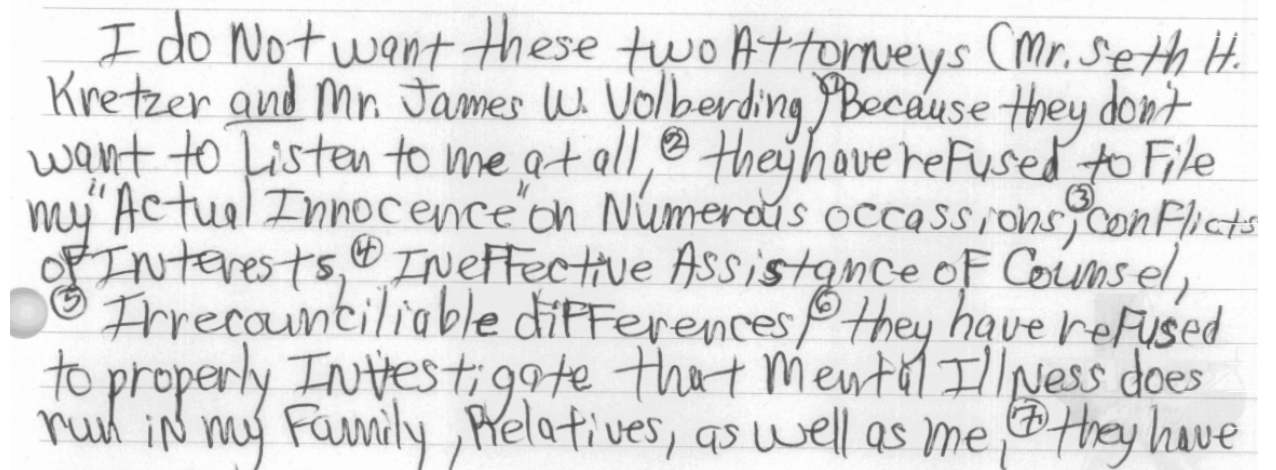 I do Not want these two Attorneys (Mr. Seth H.
Kretzer and Mr. James W. Volberding)①Because they don't
want to Listen to me at all, ② they have refused to File
my "Actual Innocence" on Numerous occassions, ③ conflicts
of Interests, ④ Ineffective Assistance of Counsel,
⑤ Irrecounciliable differences, ⑥ they have refused
to properly Investigate that Mental Illness does
run in my Family, Relatives, as well as me, ⑦ they have